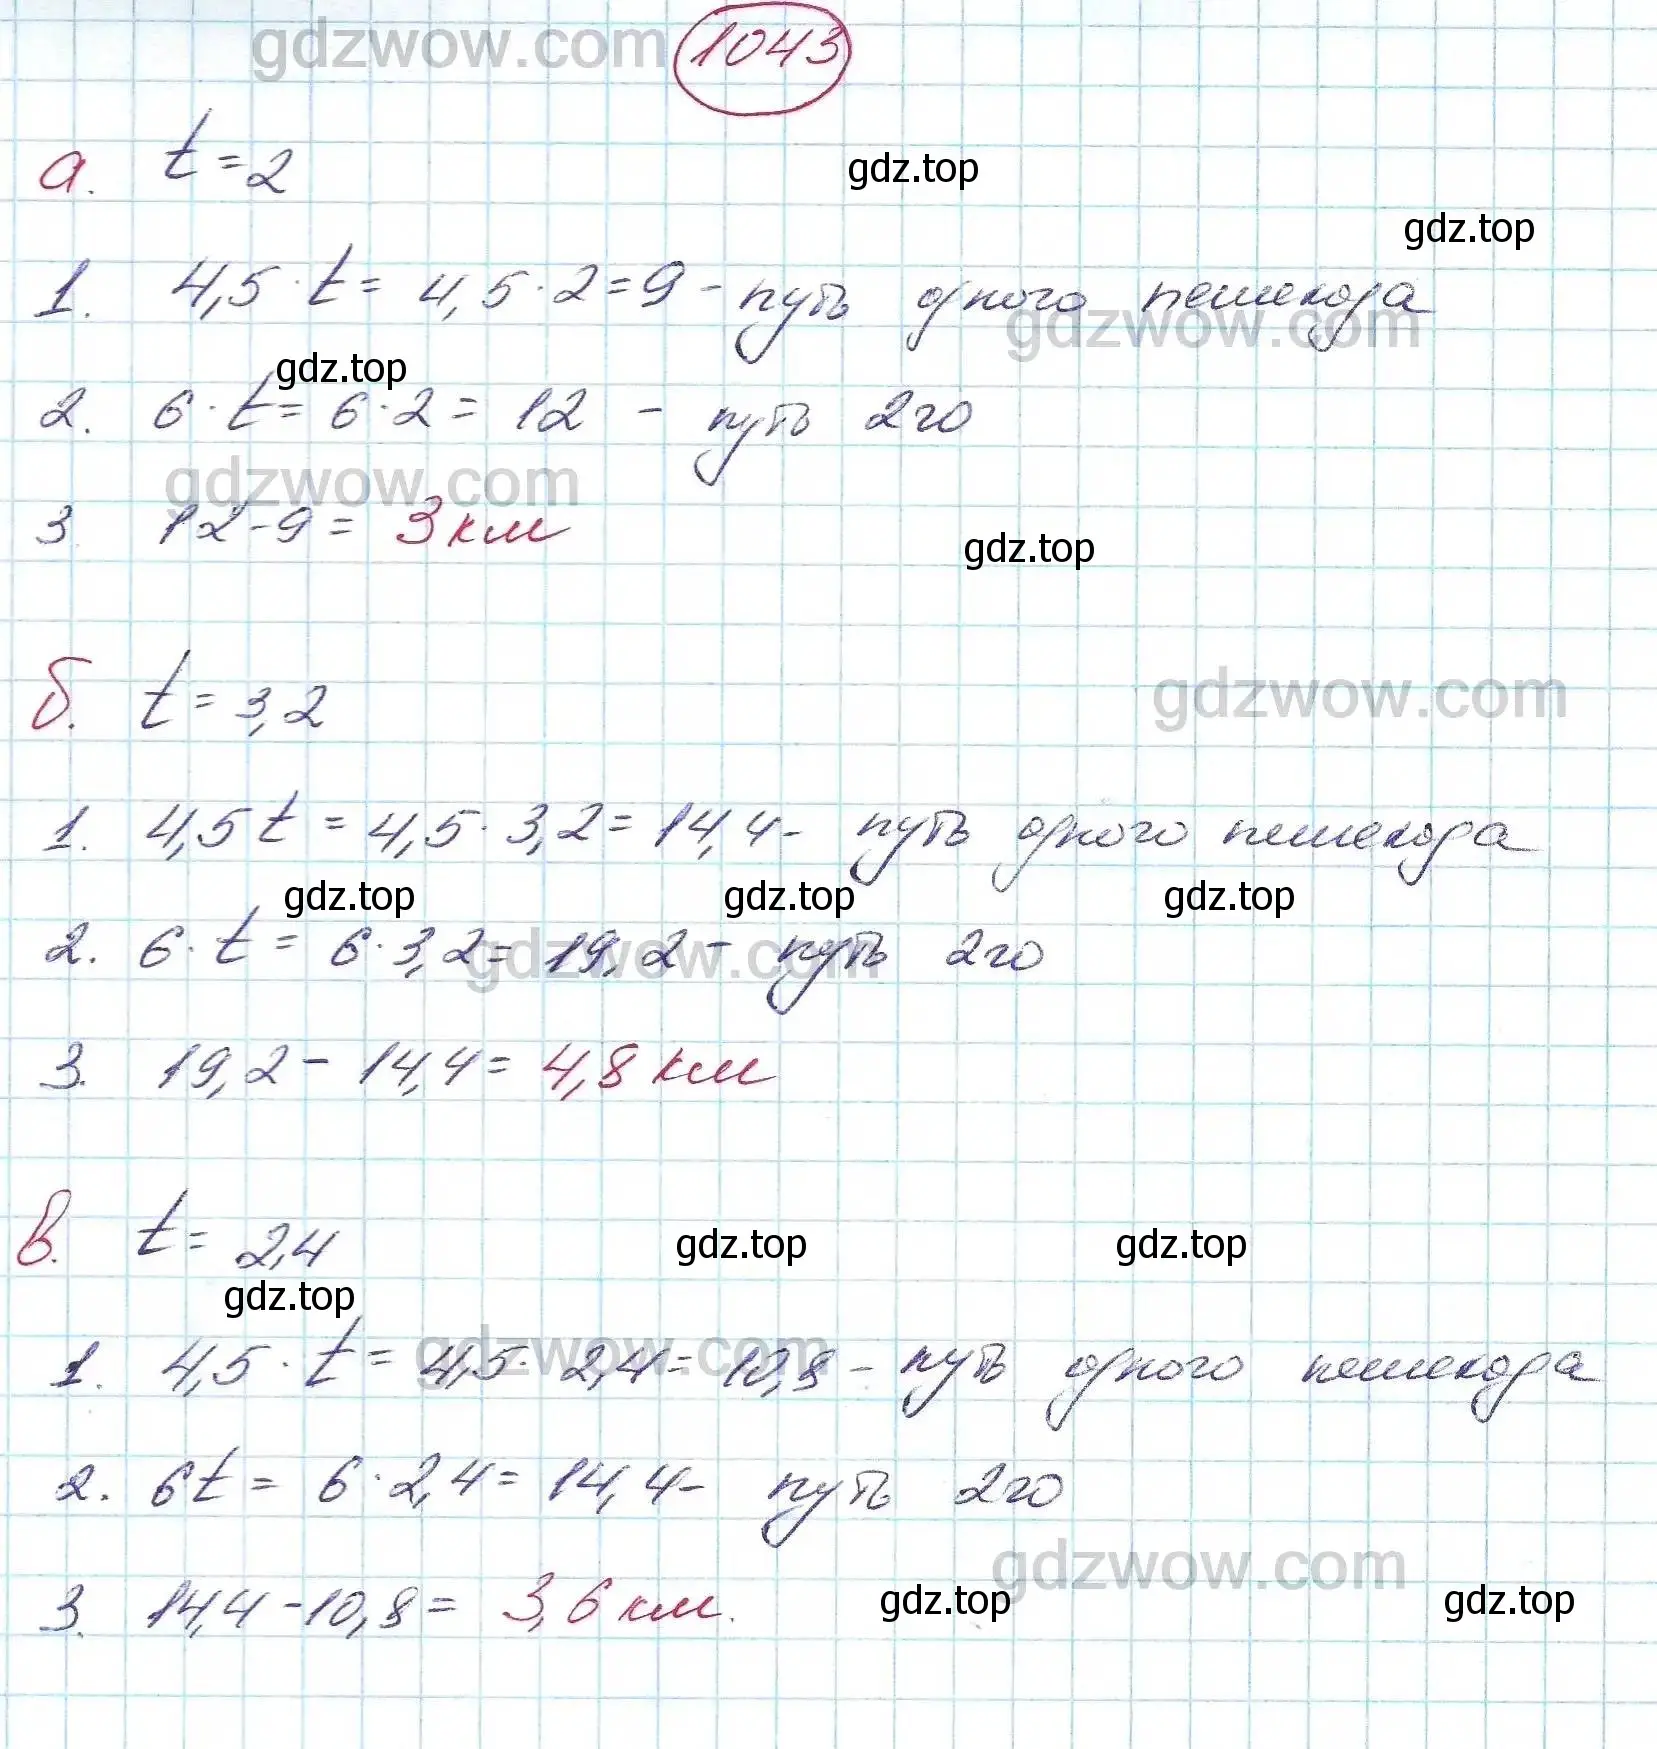 gdzwow.com
1043
а. t = 2
gdz.top
gdz.top
1. 4,5 · t = 4,5 · 2 = 9 - путь одного пешехода
gdzwow.com
gdz.top
2. 6 · t = 6 · 2 = 12 - путь 2го
gdzwow.com
3 12 - 9 = 3 км
gdz.top
б. t = 3,2
gdzwow.com
1. 4,5 t = 4,5 · 3,2 = 14,4 - путь одного пешехода
gdz.top gdz.top gdz.top
2. 6 · t = 6 · 3,2 = 19,2 - путь 2го
gdzwow.com
3. 19,2 - 14,4 = 4,8 км
в. t = 2,4
gdz.top gdz.top
gdz.top
1. 4,5 · t = 4,5 · 2,4 = 10,8 - путь одного пешехода
gdzwow.com
2. 6t = 6 · 2,4 = 14,4 - путь 2го
gdzwow.com
3. 14,4 - 10,8 = 3,6 км.
gdz.top gdz.top